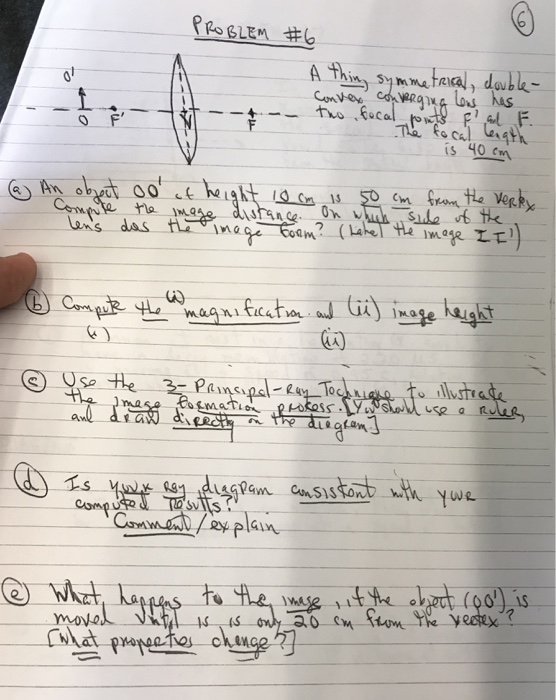 PROBLEM #6
6
A thin, symmetrical, double-
convex converging lens has
two focal points F' and F.
The focal length
is 40 cm
O'
O
F'
V
F
(a) An object OO' of height 10 cm is 50 cm from the vertex
Compute the image distance. On which side of the
lens does the image form? (Label the image II')
(b) Compute the (i) magnification and (ii) image height
(i) (ii)
(c) Use the 3-Principal-Ray Technique to illustrate
the image formation process. [You should use a ruler,
and draw directly on the diagram.]
(d) Is your ray diagram consistent with your
computed results?
Comment/explain
(e) What happens to the image, if the object (OO') is
moved until is is only 20 cm from the vertex?
[What properties change?]